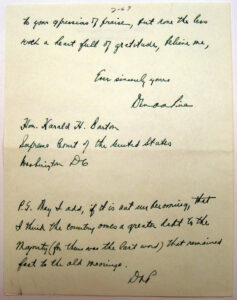 2-67
to your expressions of praise, but none the less
with a heart full of gratitude, believe me,
Ever sincerely yours
Hon. Harold H. Burton
Supreme Court of the United States
Washington D.C.
P.S. May I add, if it is not unbecoming, that
I think the country owes a greater debt to the
Majority (for theirs was the last word) that remained
fast to the old moorings.